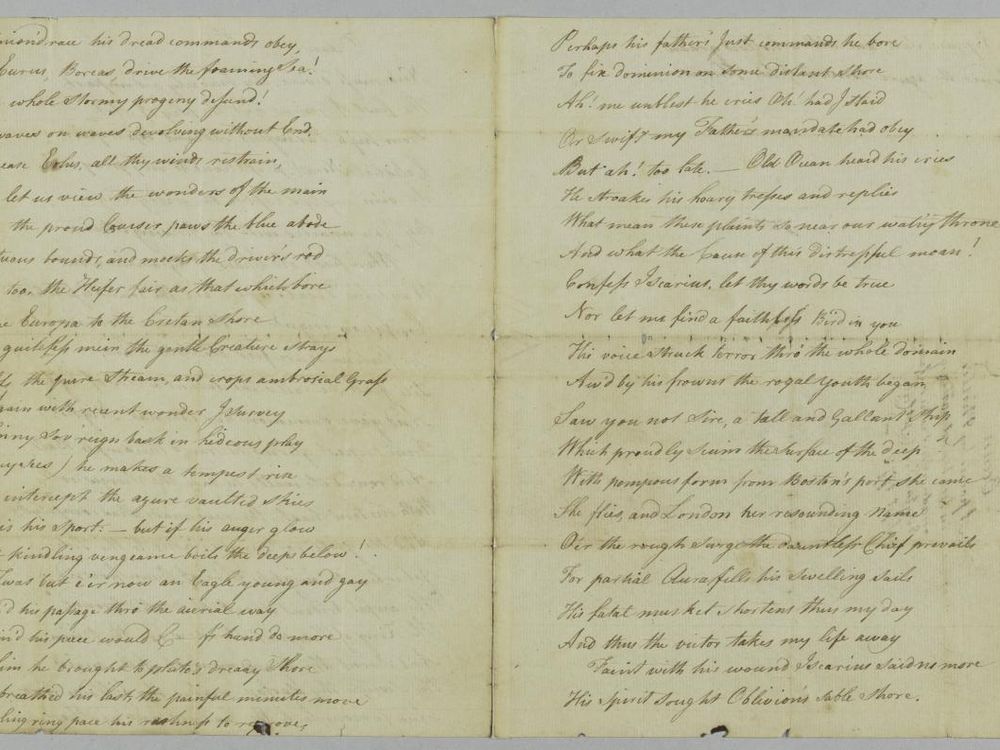 race his dread commands obey,
Eurus, Boreas, drive the foaming Sea!
whole Stormy progeny defend!
waves on waves devolving without End.
ease Eolus, all thy winds restrain,
let us view the wonders of the main
the proud Courser paws the blue abode
bounds, and mocks the driver's rod
too, the Heifer fair as that which bore
Europa to the Cretan Shore
guileless mein the gentle Creature strays
the pure Stream, and crops ambrosial Grass
with recent wonder I survey
Sov'reign bask in hideous play
he makes a tempest rise
intercept the azure vaulted skies
is his Sport: — but if his anger glow
kindling vengeance boils the deeps below!
was but e'er now an Eagle young and gay
his passage thro the aierial way
his piece would C— f's hand do more
him he brought to pluto's dreary Shore
breathed his last, the painful minutes move
ling'ring pace his rashness to reprove;
Perhaps his father's Just commands he bore
To fix dominion on some distant Shore
Ah! me unblest he cries Oh! had I Staid
Or Swift my Father's mandate had obey
But ah! too late. — Old Ocean heard his cries
He Stroakes his hoary tresses and replies
What mean these plaints so near our wat'ry throne
And what the Cause of this distressful moan!
Confess Iscarius, let thy words be true
Nor let me find a faithless Bird in you
His voice struck terror thro' the whole domain
Aw'd by his frowns the royal youth began,
Saw you not Sire, a tall and Gallant Ship
Which proudly Scims the surface of the deep
With pompous form from Boston's port she came
She flies, and London her resounding Name
O'er the rough surge the dauntless Chief prevails
For partial Aura fills his swelling Sails
His fatal musket shortens thus my day
And thus the victor takes my life away
Faint with his wound Iscarius said no more
His Spirit sought Oblivion's sable Shore.